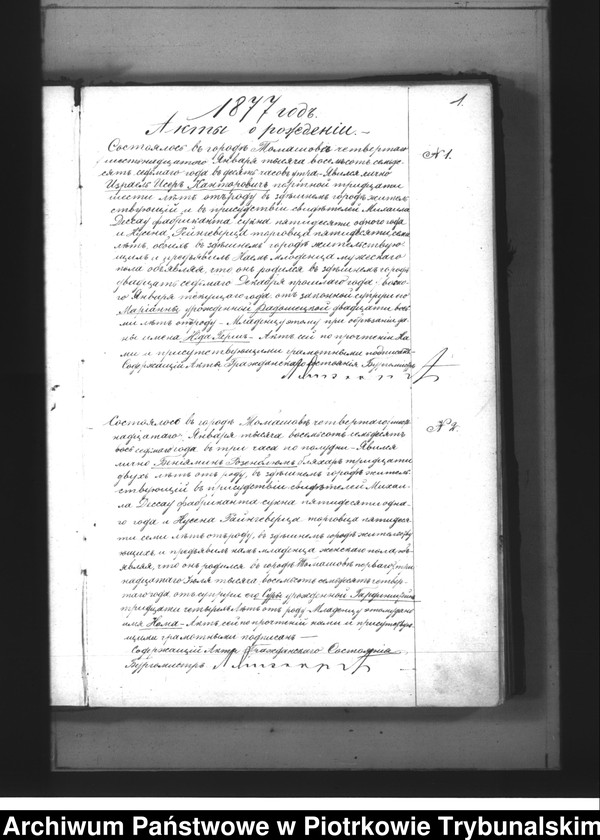 1877 годъ.
1.
Акты о рожденіи. —
№ 1.
Состоялось въ городѣ Томашовѣ четвертаго
шестнадцатаго Января тысяча восемьсотъ семьде-
сятъ седьмаго года въ десять часовъ утра. Явился лично
Израель Исеръ Канторовичъ портной тридцати
шести лѣтъ отъ роду въ здѣшнемъ городѣ житель-
ствующій, и въ присутствіи свидѣтелей Михаила
Дессау фабриканта сукна пятидесяти одного года
и Нусена торговца пятидесяти семи
лѣтъ, обоихъ въ здѣшнемъ городѣ жительствую-
щихъ и предъявилъ Намъ младенца мужескаго
пола объявляя, что онъ родился въ здѣшнемъ городѣ
двадцать седьмаго Декабря прошлаго года
Января текущаго года отъ законной супруги его
Маріанны урожденной двадцати
лѣтъ отъ роду. Младенцу этому при обрѣзаніи да-
ны имена Гершъ. Актъ сей по прочтеніи На-
ми и присутствующими грамотными подписанъ.
Содержащій Акты Гражданскаго Состоянія Бургомистръ
№ 2.
Состоялось въ городѣ Томашовѣ четвертаго шест-
надцатаго Января тысяча восемьсотъ семьдесятъ
седьмаго года въ три часа по полудни. Явился
лично Беньяминъ Розенблюмъ бляхаръ тридцати
двухъ лѣтъ отъ роду, въ здѣшнемъ городѣ житель-
ствующій въ присутствіи свидѣтелей Михаи-
ла Дессау фабриканта сукна пятидесяти одна-
го года и Нусена торговца пятидеся-
ти семи лѣтъ отъ роду, въ здѣшнемъ городѣ жительству-
ющихъ и предъявилъ намъ младенца женскаго пола, объ-
являя, что онъ родился въ городѣ Томашовѣ перваго три-
надцатаго Іюля тысяча восемьсотъ семьдесятъ четвер-
таго года отъ супруги его Суры урожденной
тридцати четырехъ лѣтъ отъ роду Младенцу этому дано
имя Нома. Актъ сей по прочтеніи нами и присутствую-
щими грамотными подписанъ —
Содержащій Акты Гражданскаго Состоянія
Бургомистръ
Archiwum Państwowe w Piotrkowie Trybunalskim